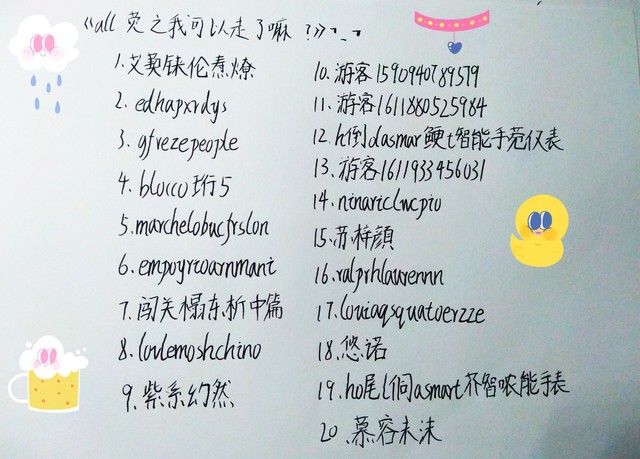 《all 荧之我可以走了嘛?》
1.艾萸铼伦煮燎
2. edhapxrdys
3. gfrezepeople
4. blocco珩5
5.marchelobucfrslon
6. empoyrioarnmani
7.闯关榻东析中篇
8. lovlemoshchino
9.紫系幻然
10.游客1590940789579
11.游客1611880525984
12.h倒dasmar鲠t智能手菀仪表
13.游客1611933456031
14.ninariclwcpiu
15.苏梓颜
16.ralprhlaurennn
17.louiaqsquatoerzze
18.悠诺
19.ho尾l侗asmart芥智哝能手表
20.慕容未沫